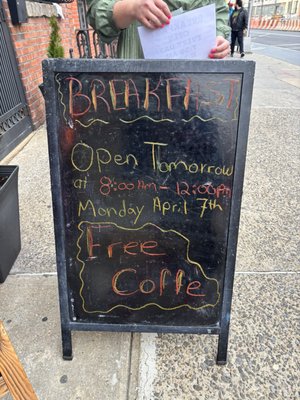 BREAKFAST
Open Tomorrow
at 8:00AM - 12:00PM
Monday April 7th
Free
Coffe